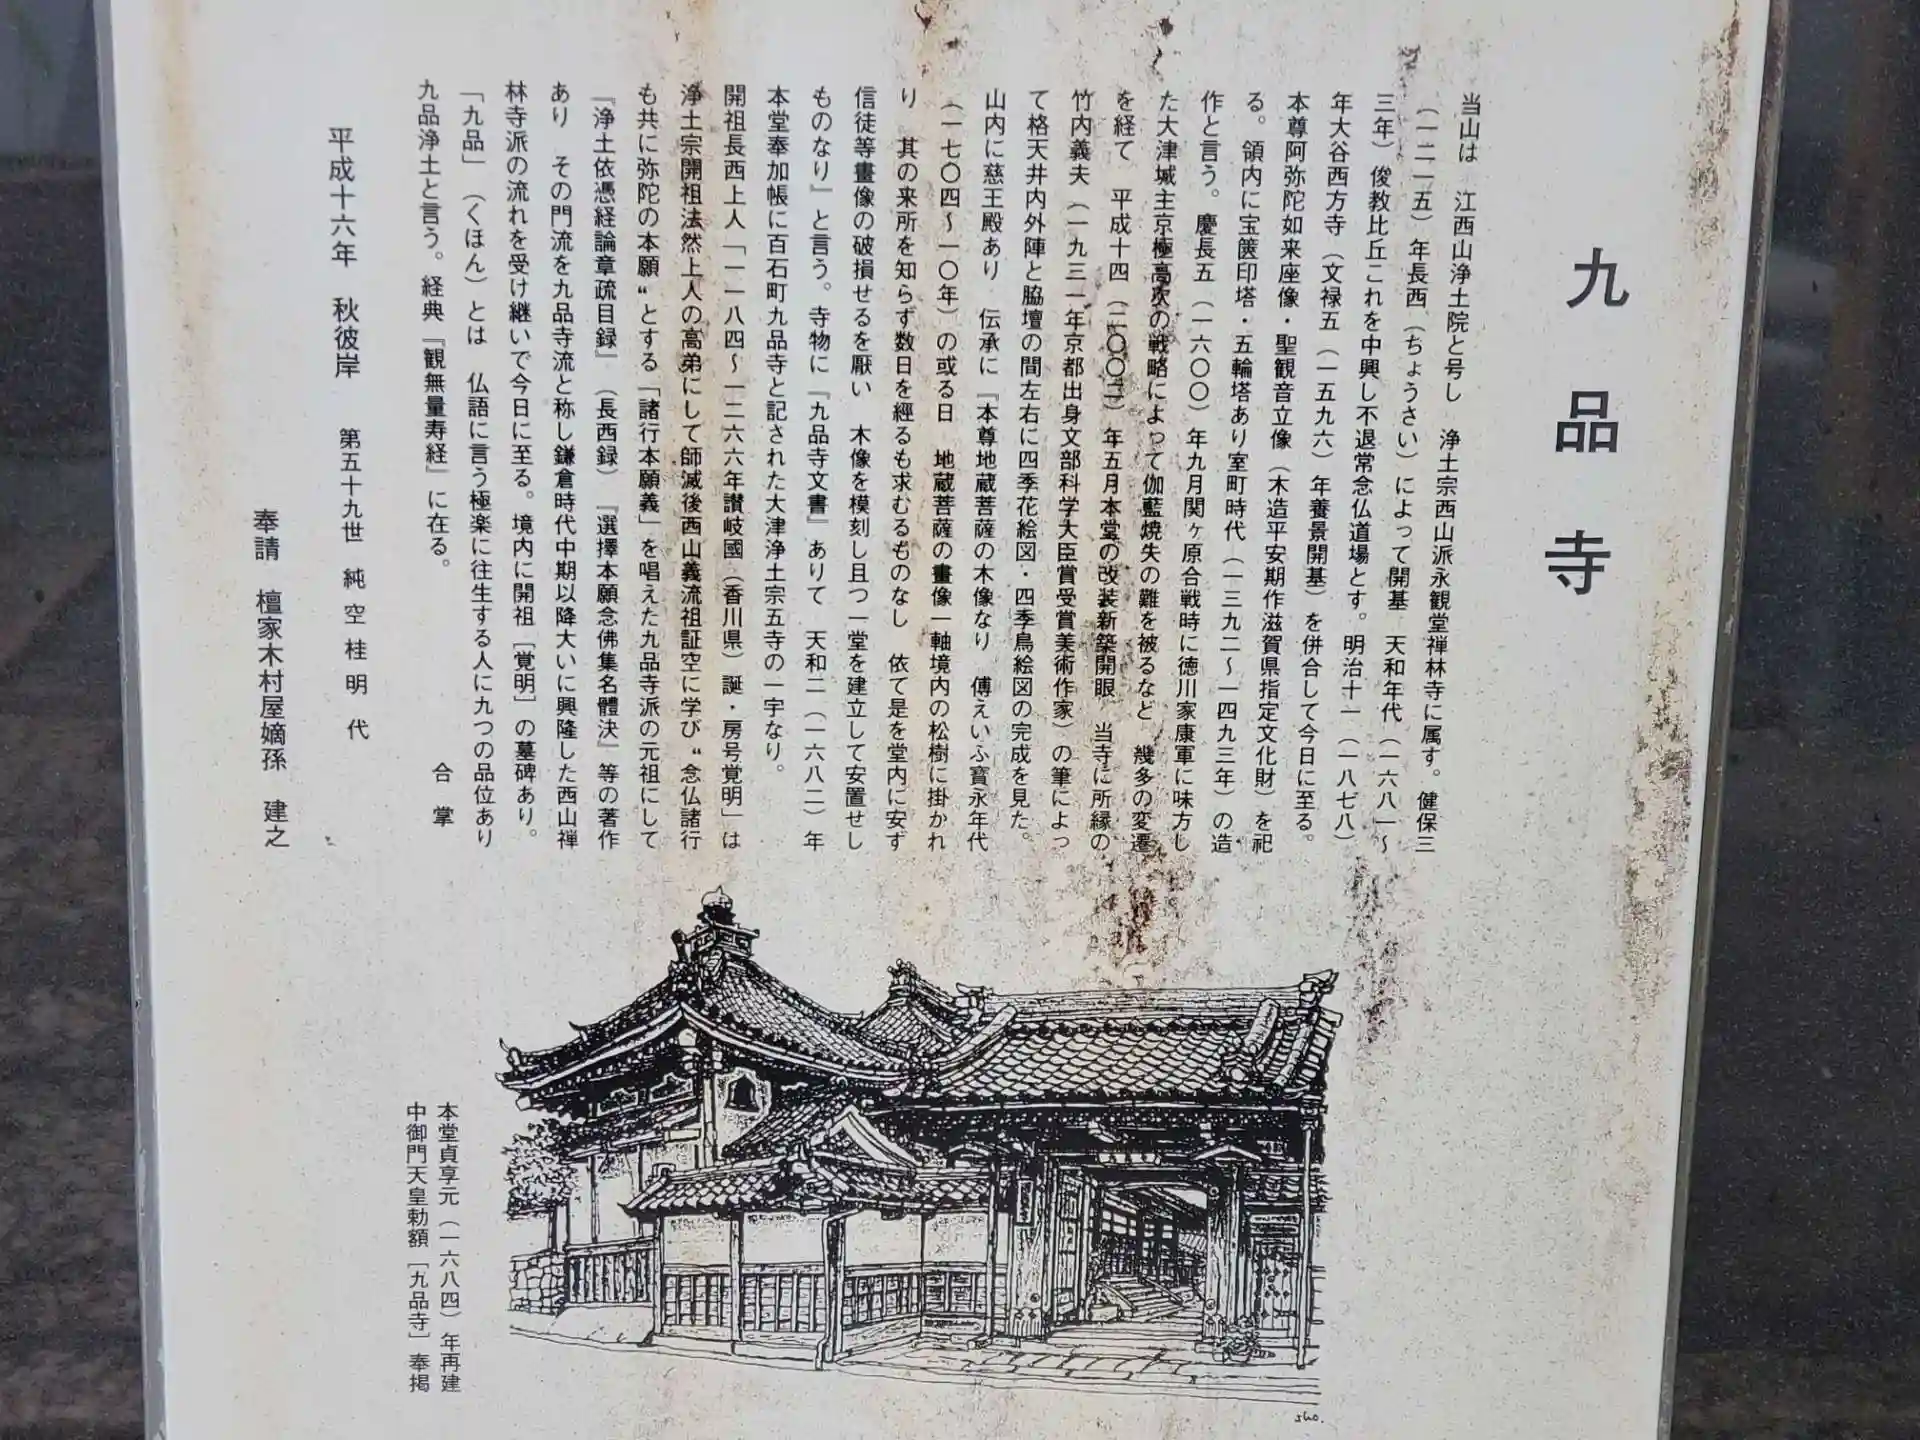 九品寺
当山は 江西山浄土院と号し 浄土宗西山派永観堂禅林寺に属す。健保三
(一二一五)年長西(ちょうさい)によって開基 天和年代(一六八一〜
三年)俊教比丘これを中興し不退常念仏道場とす。明治十一(一八七八)
年大谷西方寺(文禄五(一五九六)年養景開基)を併合して今日に至る。
本尊阿弥陀如来座像・聖観音立像(木造平安期作滋賀県指定文化財)を祀
る。領内に宝篋印塔・五輪塔あり室町時代(一三九二〜一四九三年)の造
作と言う。慶長五(一六〇〇)年九月関ヶ原合戦時に徳川家康軍に味方し
た大津城主京極高次の戦略によって伽藍焼失の難を被るなど 幾多の変遷
を経て 平成十四(二〇〇二)年五月本堂の改装新築開眼 当寺に所縁の
竹内義夫(一九三一年京都出身文部科学大臣賞受賞美術作家)の筆によっ
て格天井内外陣と脇壇の間左右に四季花絵図・四季鳥絵図の完成を見た。
山内に慈王殿あり 伝承に『本尊地蔵菩薩の木像なり 傳えいふ寳永年代
(一七〇四〜一〇年)の或る日 地蔵菩薩の畫像一軸境内の松樹に掛かれ
り 其の来所を知らず数日を經るも求むるものなし 依て是を堂内に安ず
信徒等畫像の破損せるを厭い 木像を模刻し且つ一堂を建立して安置せし
ものなり』と言う。寺物に『九品寺文書』ありて 天和二(一六八二)年
本堂奉加帳に百石町九品寺と記された大津浄土宗五寺の一宇なり。
開祖長西上人「一一八四〜一二六六年讃岐國(香川県)誕・房号覚明」は
浄土宗開祖法然上人の高弟にして師滅後西山義流祖証空に学び〝念仏諸行
も共に弥陀の本願〟とする「諸行本願義」を唱えた九品寺派の元祖にして
『浄土依憑経論章疏目録』(長西録)『選擇本願念佛集名體決』等の著作
あり その門流を九品寺流と称し鎌倉時代中期以降大いに興隆した西山禅
林寺派の流れを受け継いで今日に至る。境内に開祖[覚明]の墓碑あり。
「九品」(くほん)とは 仏語に言う極楽に往生する人に九つの品位あり
九品浄土と言う。経典『観無量寿経』に在る。 合掌
平成十六年 秋彼岸 第五十九世 純空桂明代
奉請 檀家木村屋嫡孫 建之
本堂貞享元(一六八四)年再建
中御門天皇勅額[九品寺]奉掲
sho.